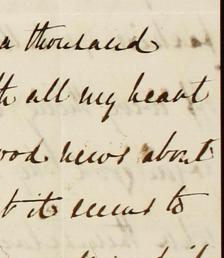 a thousand
all my heart
news about
it seems to